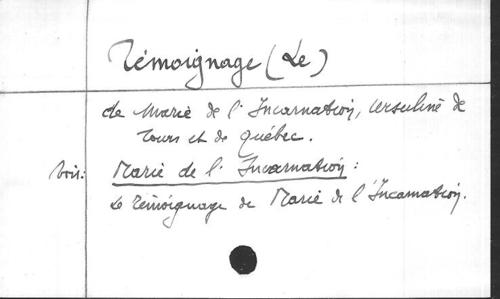 Témoignage (Le)
de Marie de l'Incarnation, Ursuline de
Tours et de Québec.
Voir: Marie de l'Incarnation:
Le Témoignage de Marie de l'Incarnation.